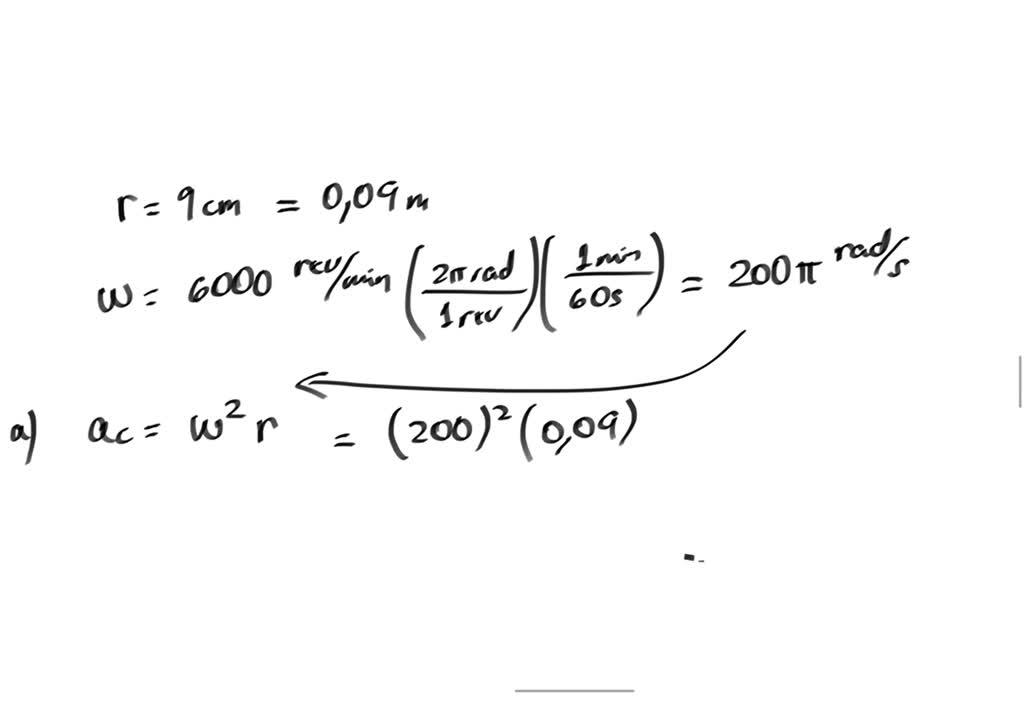 r = 9 cm = 0,09 m
ω = 6000 rev/min (2π rad / 1 rev)(1 min / 60s) = 200π rad/s
a) ac = ω² r = (200)² (0,09)